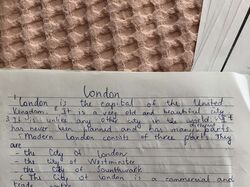 London
London is the capital of the United
Kingdom. It is a very old and beautiful city.
It is unlike any other city in the world. It
has never been planned and has many parts.
Modern London consists of three parts. They
are
- the City of London
- the city of Westminster
- the City of Southwark
The City of London is a commercial and
trade